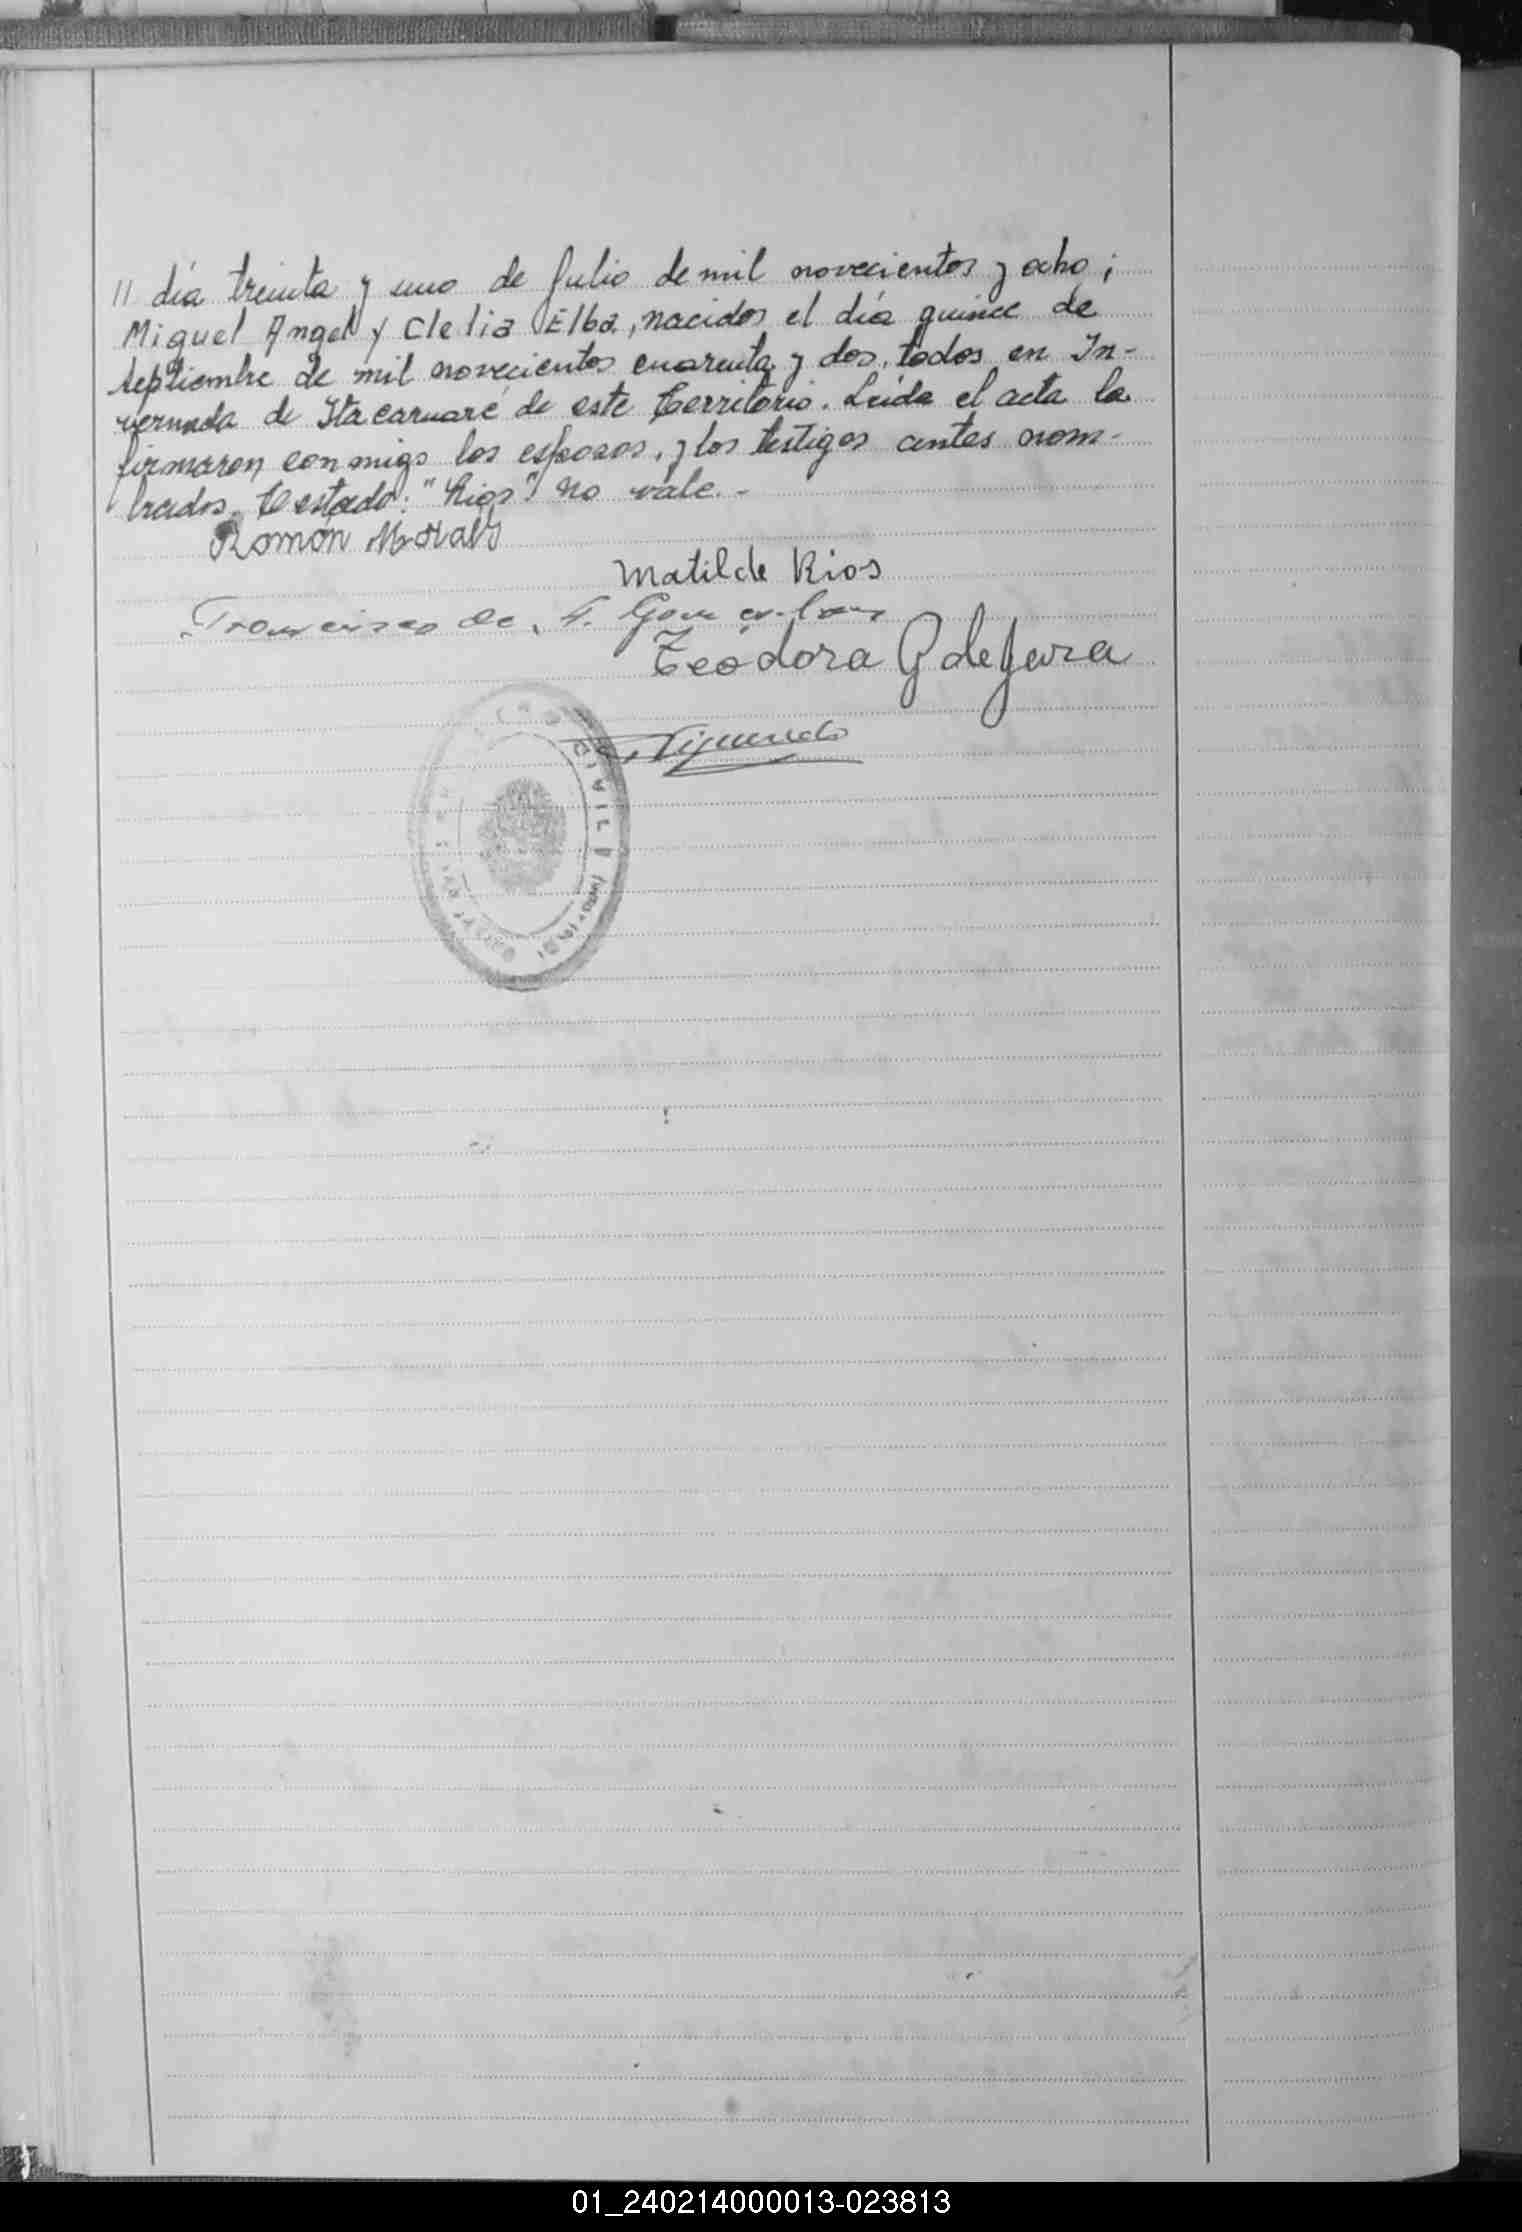 // día treinta y uno de Julio de mil novecientos y ocho;
Miguel Angel y Clelia Elba, nacidos el día quince de
septiembre de mil novecientos cuarenta y dos, todos en In-
vernada de Itacaruaré de este Territorio. Leída el acta la
firmaron conmigo los esposos, y los testigos antes nom-
brados. Testado: "Rios" No vale.-
Román Morales
Matilde Rios
Francisco de
Teódora G de Jara
CIVIL
01_240214000013-023813